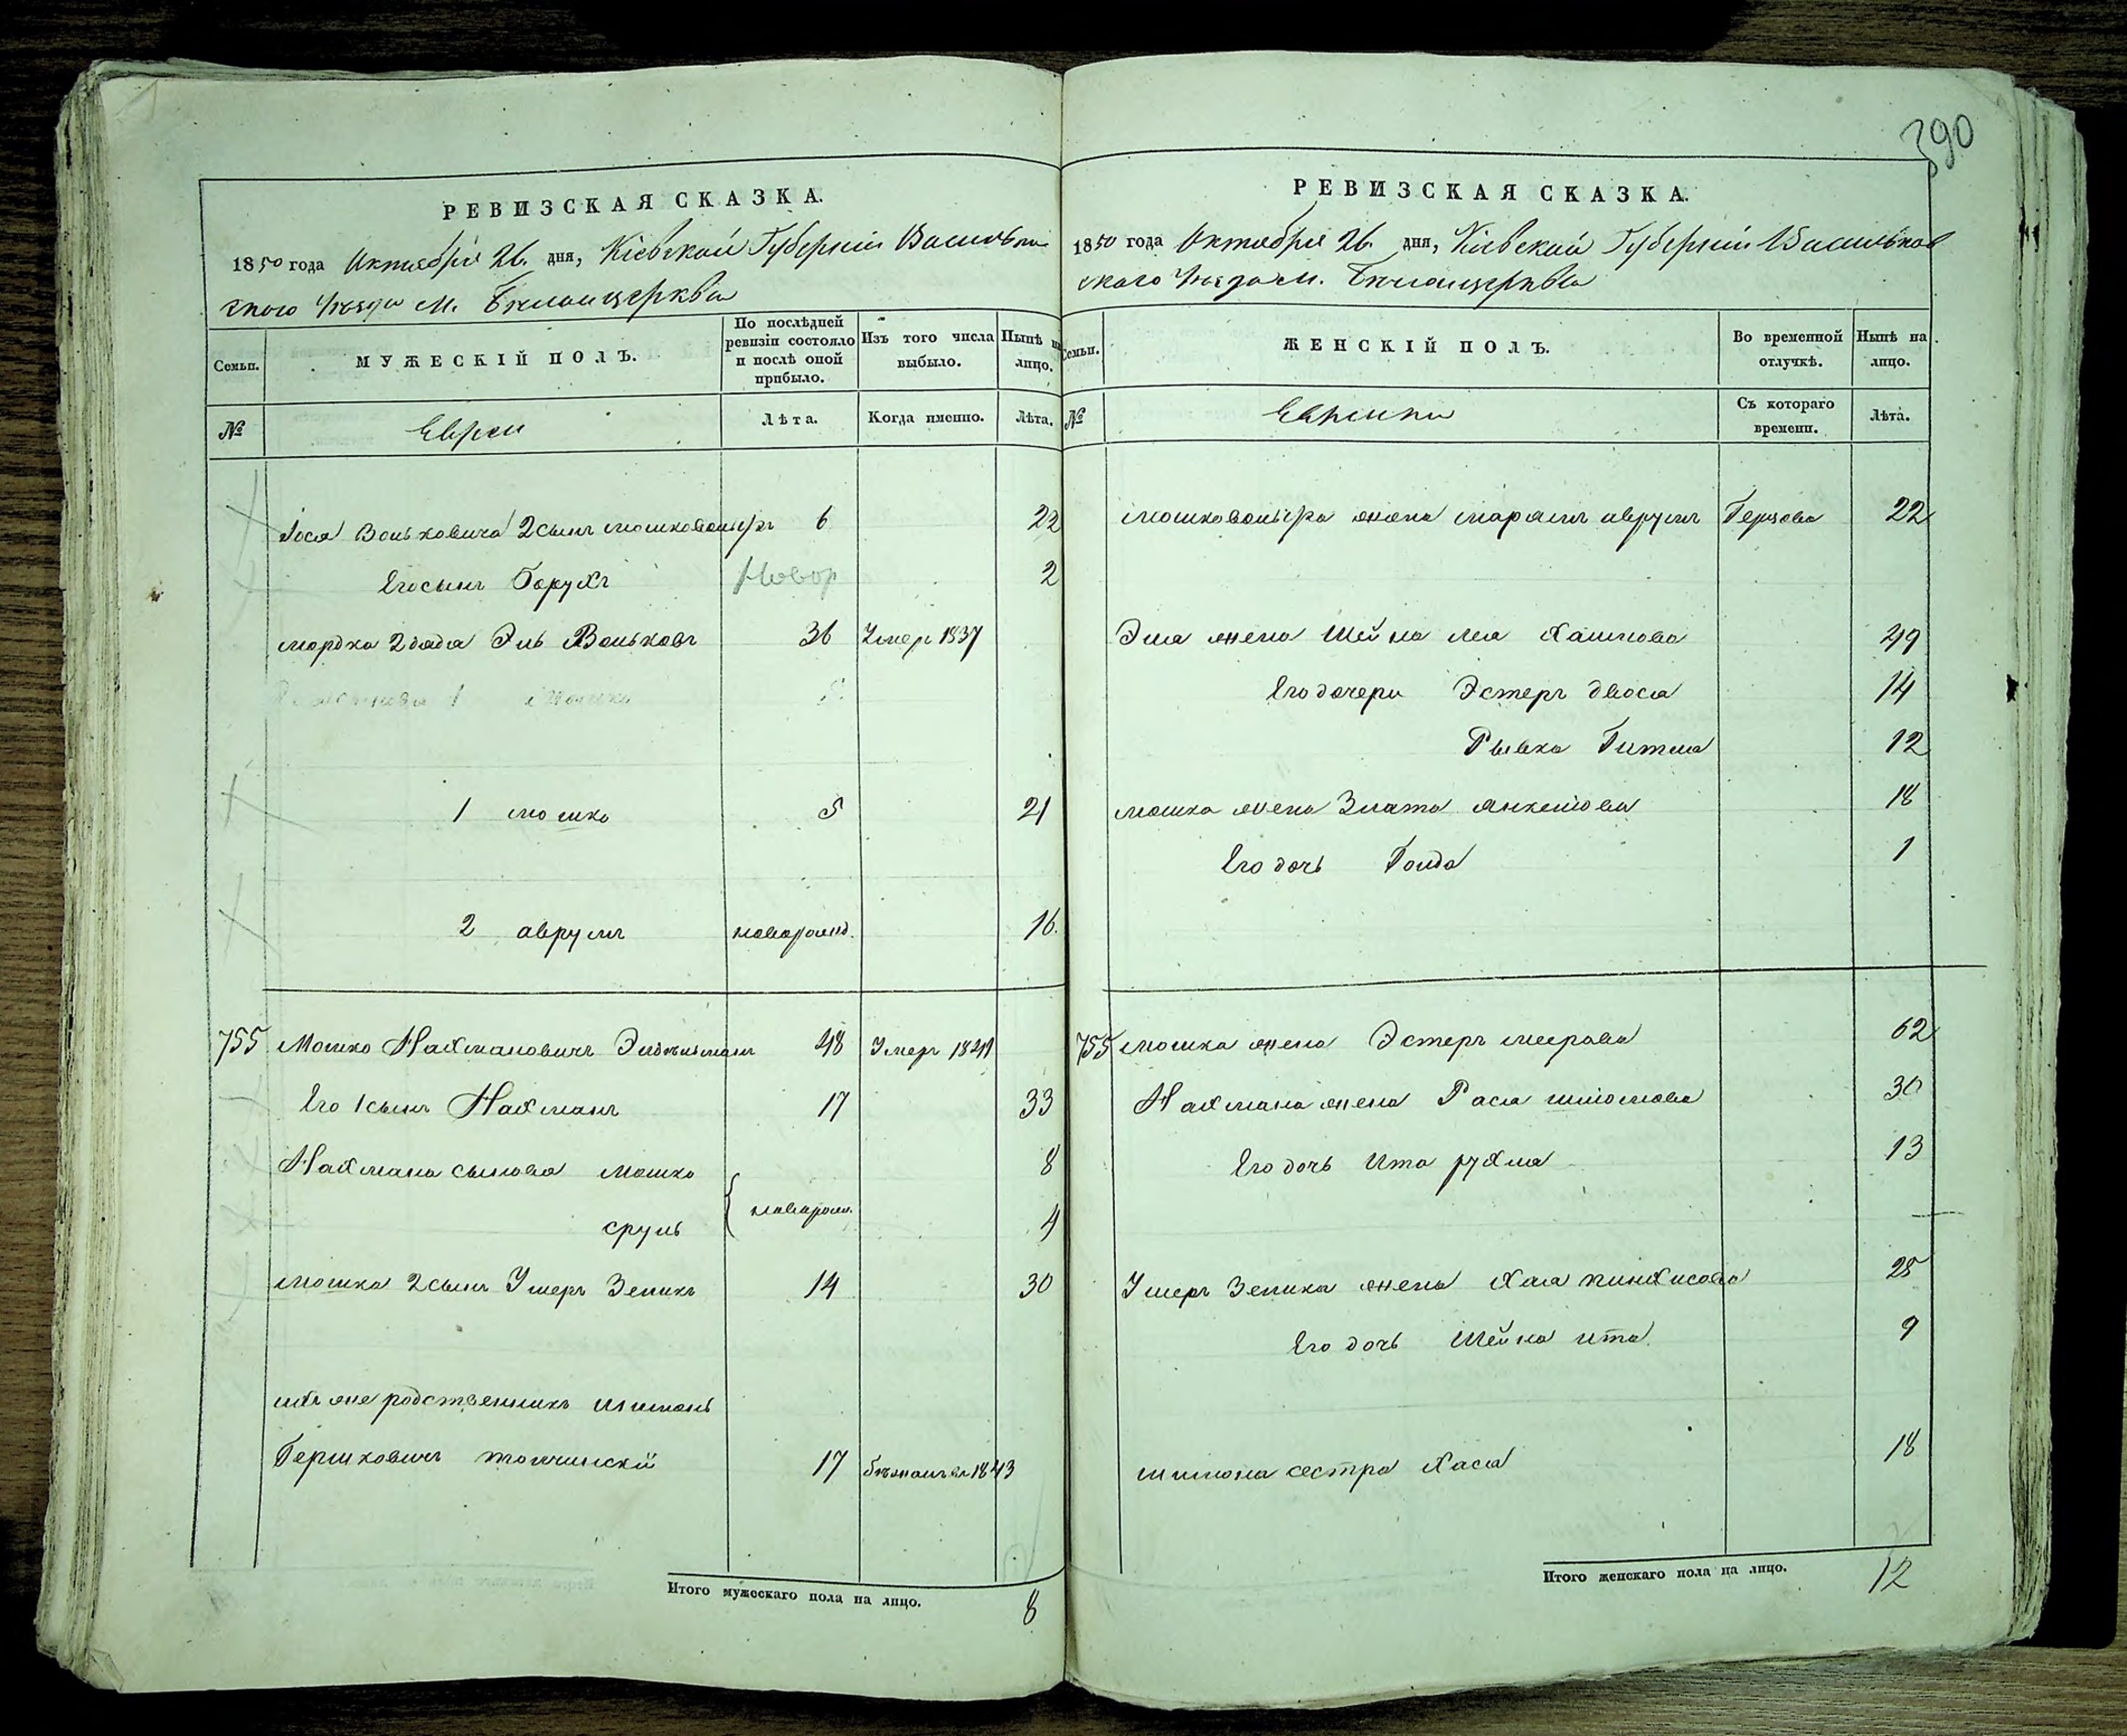 390
РЕВИЗСКАЯ СКАЗКА.
1850 года Октября 26. дня, Кіевской Губерніи Васильков
ского Уѣзда м. Бѣлойцеркви
Семьи.
МУЖЕСКІЙ ПОЛЪ.
По послѣдней ревизіи состояло и послѣ оной прибыло.
Изъ того числа выбыло.
Нынѣ на лицо.
№
Евреи
Лѣта.
Когда именно.
Лѣта.
Іося Вольковича 2 сынъ мошковольфъ 6 22
Его сынъ Борухъ Новор 2
мордка 2 дядя Эль Вольковъ 36 Умеръ 1837
1 мошко 5
1 мошко 5 21
2 аврумъ новорожд. 16.
755 Мошко Нахмановичъ 48 Умеръ 1841
Его 1 сынъ Нахманъ 17 33
Нахмана сыновья мошко 8
новорож.
сруль 4
мошка 2 сынъ Ушеръ Зеликъ 14 30
ихъ же родственникъ шимонъ
Гершковичъ толчинскій 17 бѣжалъ въ 1843
Итого мужескаго пола на лицо. 8
РЕВИЗСКАЯ СКАЗКА.
1850 года Октября 26. дня, Кіевской Губерніи Васильков
ского Уѣзда м. Бѣлойцеркви
Семьи.
ЖЕНСКІЙ ПОЛЪ.
Во временной отлучкѣ.
Нынѣ на лицо.
№
Еврейки
Съ котораго времени.
Лѣта.
мошковольфа жена марьямъ аврумъ Герцова 22
Эля жена Шейна лея Хаимова 49
Его дочери Эстеръ двося 14
Рывка Гитля 12
мошка жена Злата янкелёва 18
Его дочь Голда 1
755 мошка жена Эстеръ меерова 62
Нахмана жена Рася шлиомова 30
Его дочь Ита рухля 13
Ушеръ Зелика жена Хая пинхасова 25
Его дочь Шейна ита 9
шимона сестра Хася 18
Итого женскаго пола на лицо. 12